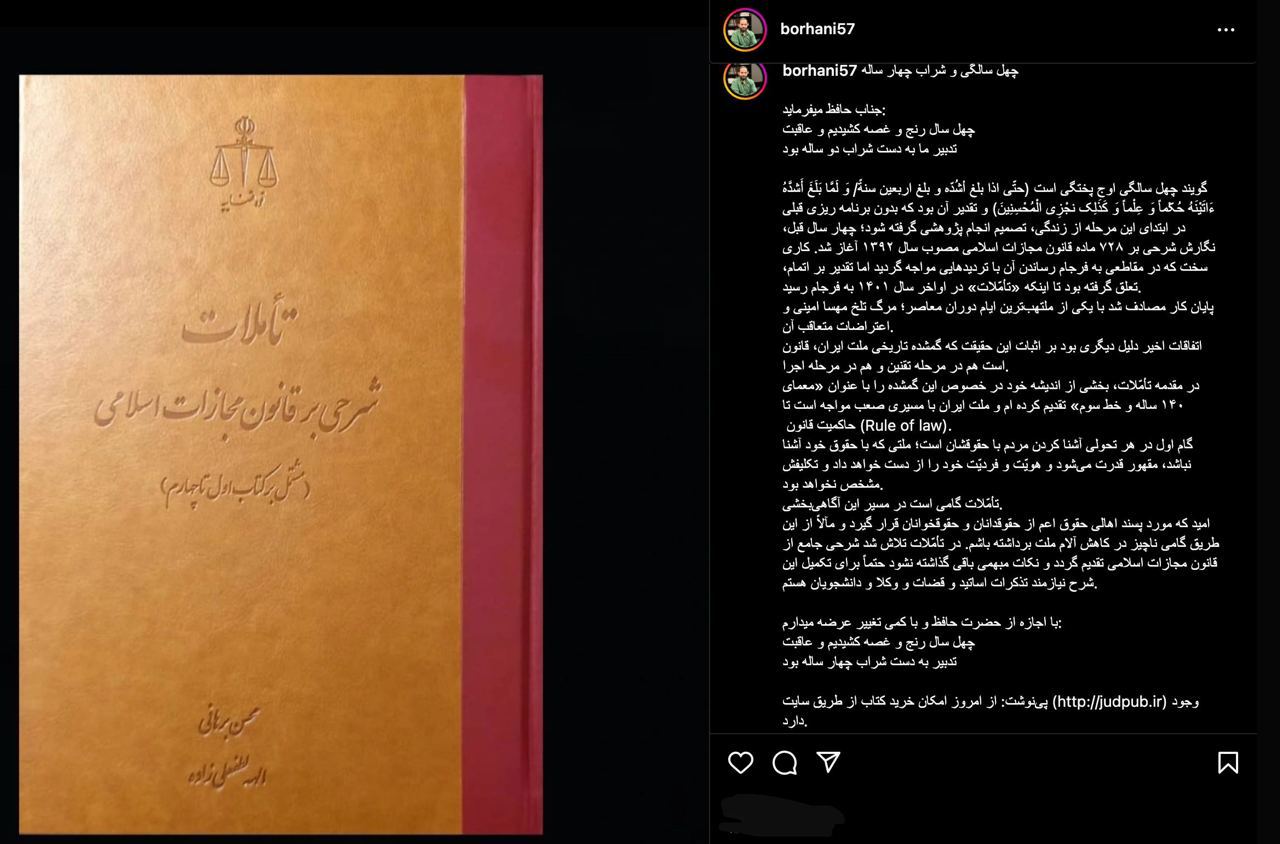 قوه قضاییه
تأملات
شرحی بر قانون مجازات اسلامی
(مشتمل بر کتاب اول تا چهارم)
محسن برهانی
الهه لطفعلی زاده
borhani57
borhani57 چهل سالگی و شراب چهار ساله
جناب حافظ میفرماید:
چهل سال رنج و غصه کشیدیم و عاقبت
تدبیر ما به دست شراب دو ساله بود
گویند چهل سالگی اوج پختگی است (حتّی اذا بلغ أشدّه و بلغ اربعین سنةً/ وَ لَمَّا بَلَغَ أَشدَّهُ
ءَاتَیْنَهُ حُکْماً وَ عِلْماً وَ کَذلِکَ نجْزِی الْمُحْسِنِینَ) و تقدیر آن بود که بدون برنامه ریزی قبلی
در ابتدای این مرحله از زندگی، تصمیم انجام پژوهشی گرفته شود؛ چهار سال قبل،
نگارش شرحی بر ۷۲۸ ماده قانون مجازات اسلامی مصوب سال ۱۳۹۲ آغاز شد. کاری
سخت که در مقاطعی به فرجام رساندن آن با تردیدهایی مواجه گردید اما تقدیر بر اتمام،
تعلق گرفته بود تا اینکه «تأمّلات» در اواخر سال ۱۴۰۱ به فرجام رسید.
پایان کار مصادف شد با یکی از ملتهب‌ترین ایام دوران معاصر؛ مرگ تلخ مهسا امینی و
اعتراضات متعاقب آن.
اتفاقات اخیر دلیل دیگری بود بر اثبات این حقیقت که گمشده تاریخی ملت ایران، قانون
است هم در مرحله تقنین و هم در مرحله اجرا.
در مقدمه تأمّلات، بخشی از اندیشه خود در خصوص این گمشده را با عنوان «معمای
۱۴۰ ساله و خط سوم» تقدیم کرده ام و ملت ایران با مسیری صعب مواجه است تا
حاکمیت قانون (Rule of law).
گام اول در هر تحولی آشنا کردن مردم با حقوقشان است؛ ملتی که با حقوق خود آشنا
نباشد، مقهور قدرت می‌شود و هویّت و فردیّت خود را از دست خواهد داد و تکلیفش
مشخص نخواهد بود.
تأمّلات گامی است در مسیر این آگاهی‌بخشی.
امید که مورد پسند اهالی حقوق اعم از حقوقدانان و حقوقخوانان قرار گیرد و مآلاً از این
طریق گامی ناچیز در کاهش آلام ملت برداشته باشم. در تأمّلات تلاش شد شرحی جامع از
قانون مجازات اسلامی تقدیم گردد و نکات مبهمی باقی گذاشته نشود حتماً برای تکمیل این
شرح نیازمند تذکرات اساتید و قضات و وکلا و دانشجویان هستم.
با اجازه از حضرت حافظ و با کمی تغییر عرضه میدارم:
چهل سال رنج و غصه کشیدیم و عاقبت
تدبیر به دست شراب چهار ساله بود
پی‌نوشت: از امروز امکان خرید کتاب از طریق سایت (http://judpub.ir) وجود
دارد.